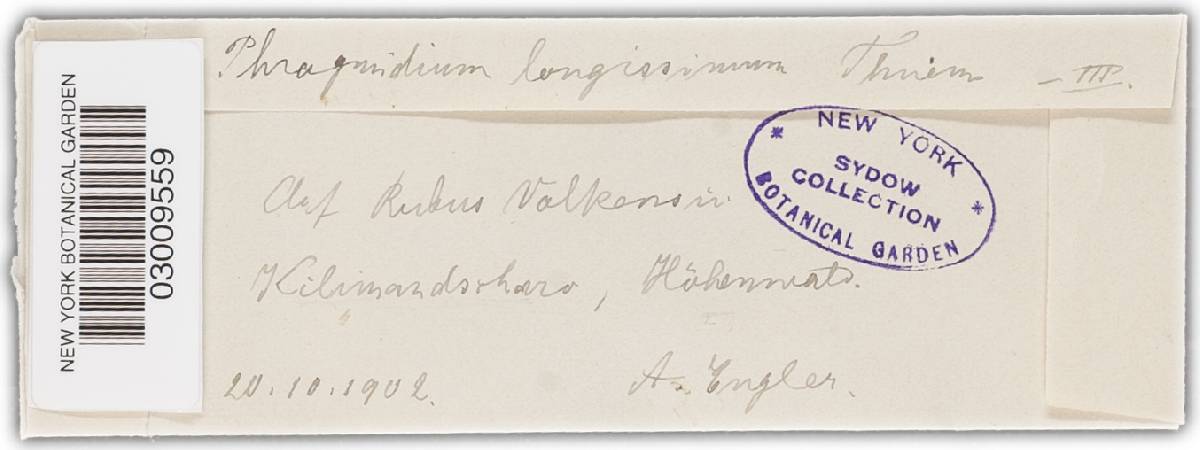 Phragmidium longissimum Thüem — III.
NEW YORK
SYDOW
COLLECTION
BOTANICAL GARDEN
Auf Rubus Volkensii
Kilimandscharo, Höhenwald.
20.10.1902.
A. Engler.
NEW YORK BOTANICAL GARDEN
03009559